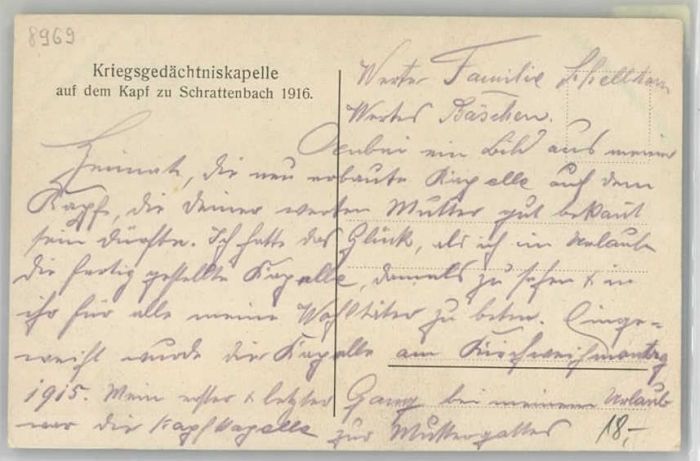 8969
Kriegsgedächtniskapelle
auf dem Kapf zu Schrattenbach 1916.
Werte Familie Schellhorn
Wertes Bäschen.
Anbei ein Bild aus meiner
Heimat, die neu erbaute Kapelle auf dem
Kapfe, die deiner werten Mutter gut bekannt
sein dürfte. Ich hatte das Glück, als ich im Urlaub
die fertig gestellte Kapelle, damals zu sehen & in
ihr für alle meine Wohltäter zu beten. Einge-
weiht wurde die Kapelle am Kirchweihmontag
1915. Mein erster & letzter Gang bei meinem Urlaub
war die Kapfkapelle zur Muttergottes
18,-